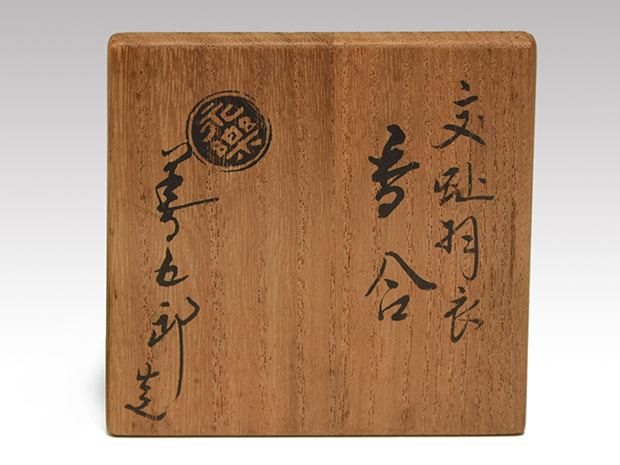 交趾羽衣
香合
永樂
善五郎造